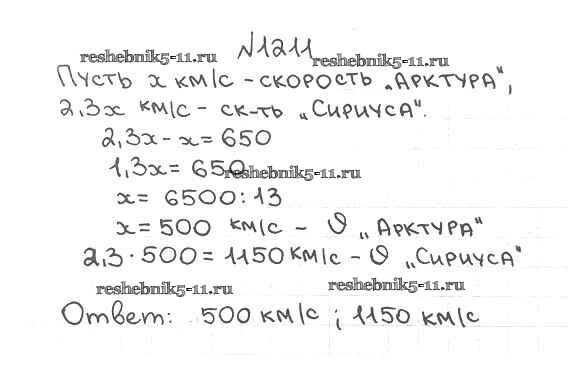 №1211
reshebnik5-11.ru reshebnik5-11.ru
Пусть x км/с - скорость „Арктура",
2,3x км/с - ск-ть „Сириуса".
2,3x - x = 650
1,3x = 650
reshebnik5-11.ru
x = 6500 : 13
x = 500 км/с - υ „Арктура"
2,3 · 500 = 1150 км/с - υ „Сириуса"
reshebnik5-11.ru reshebnik5-11.ru
Ответ: 500 км/с ; 1150 км/с